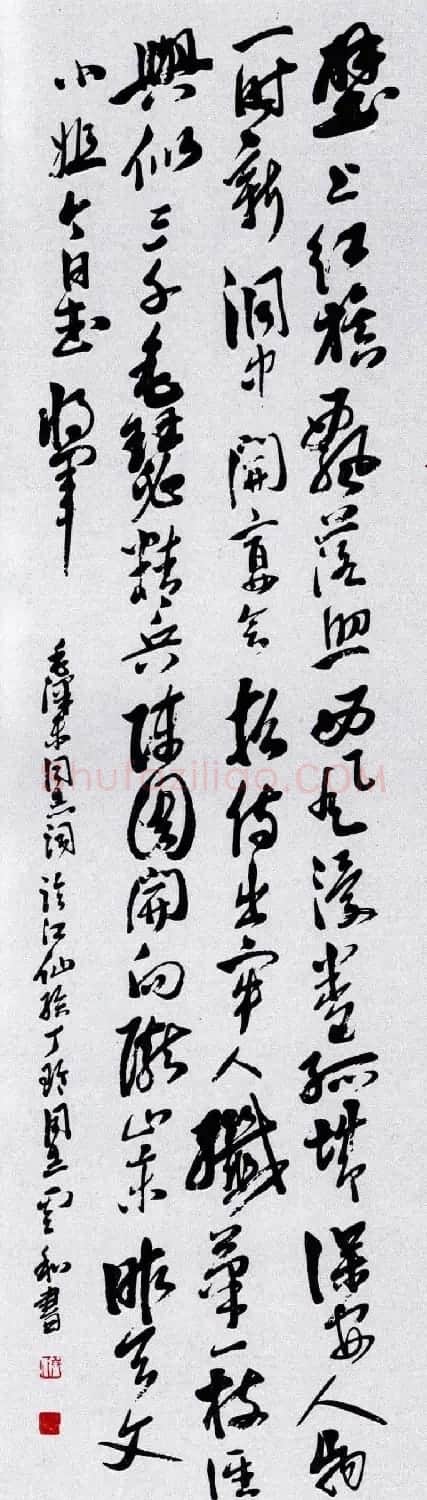 壁上红旗飘落照西风漫卷孤城保安人物
一时新洞中開宴会招待出牢人纖筆一枝谁
與似三千毛瑟精兵陣圖開向隴山東昨天文
小姐今日武将軍
毛澤東同志词临江仙给丁玲同志 雲和書
shufaziliao.COM